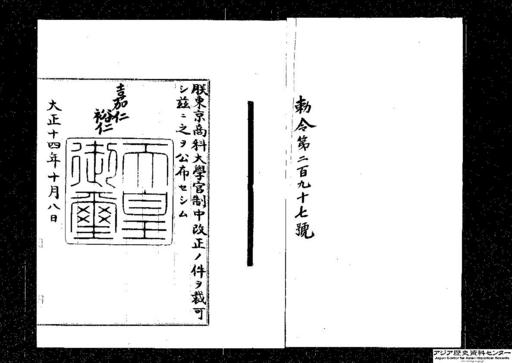 勅令第二百九十七號
朕東京商科大學官制中改正ノ件ヲ裁可
シ茲ニ之ヲ公布セシム
嘉仁
裕仁
天皇
御璽
大正十四年十月八日
アジア歴史資料センター
Japan Center for Asian Historical Records